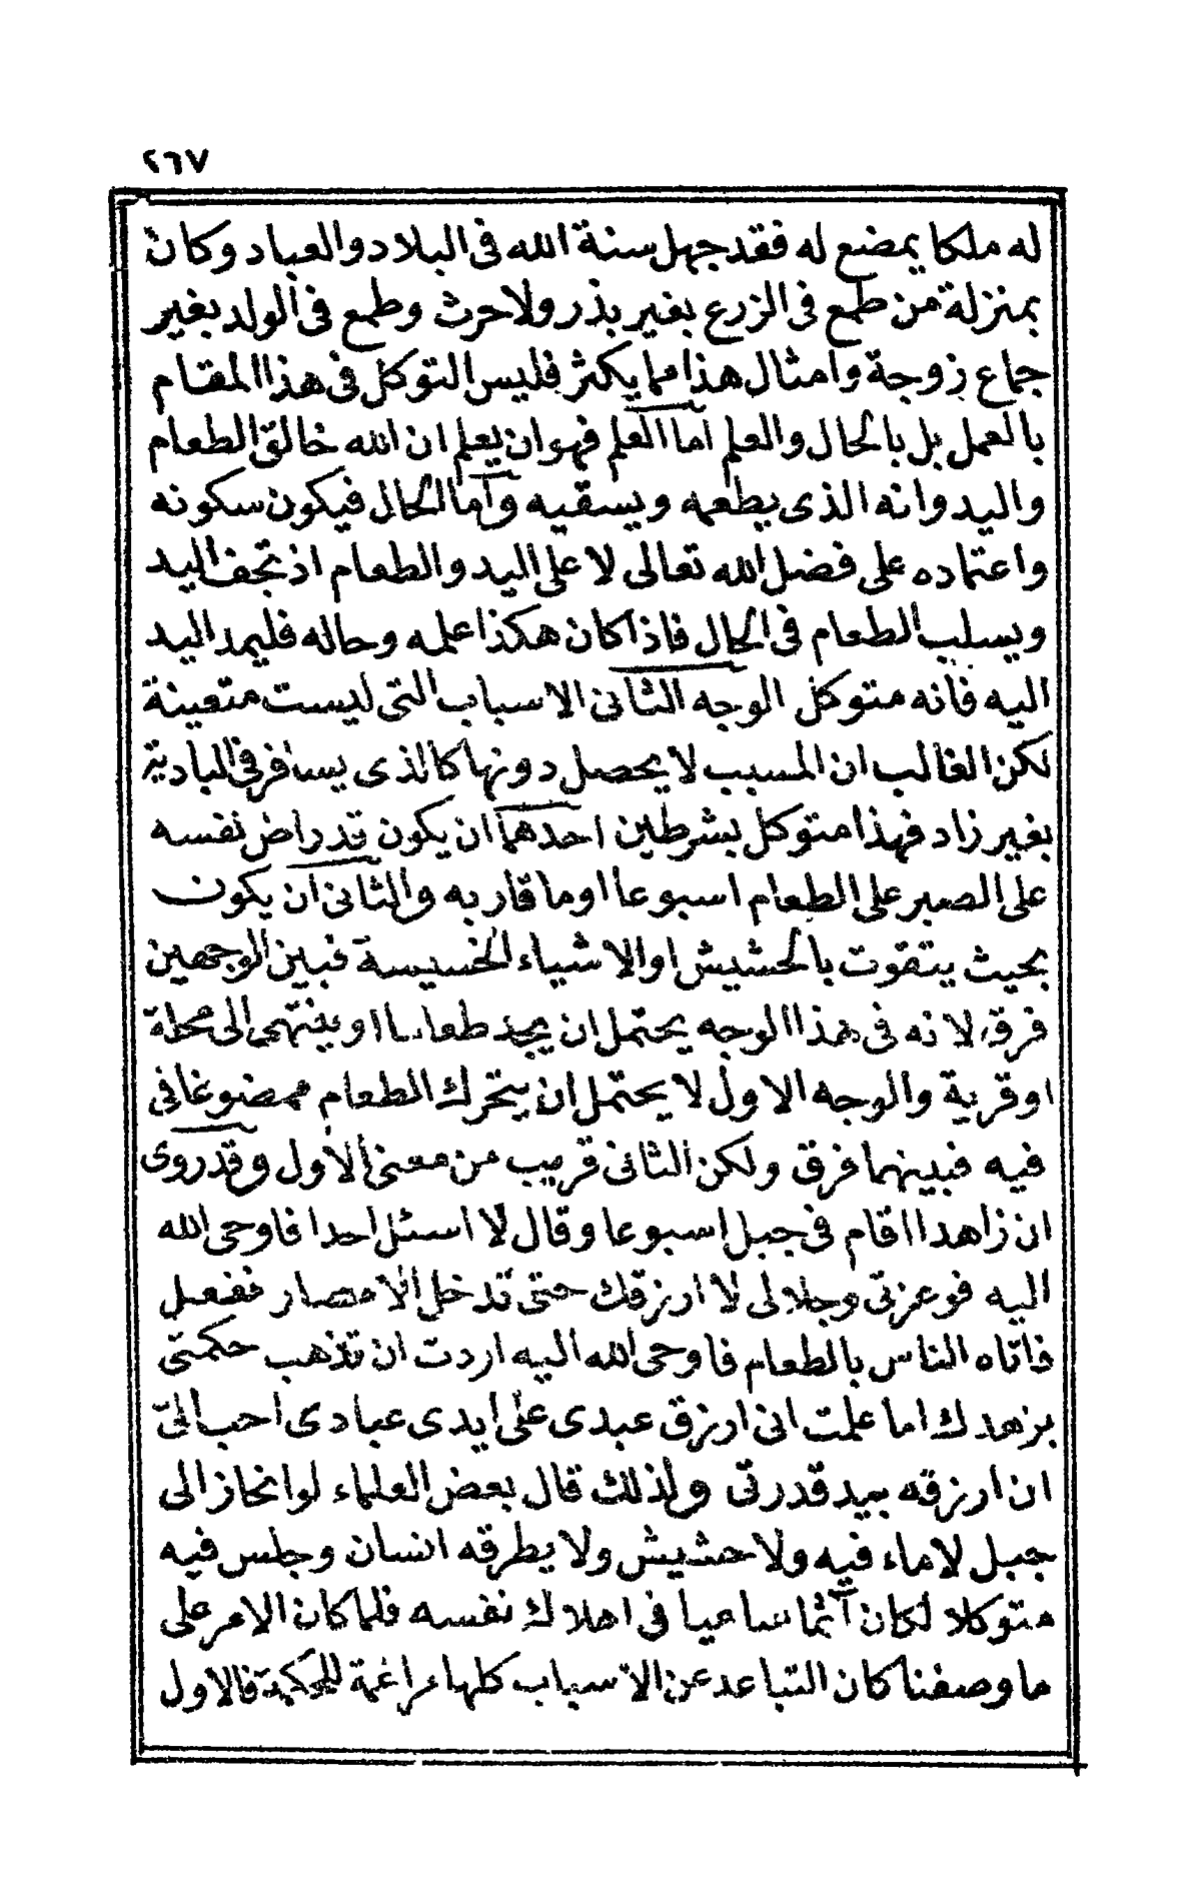 ٢٦٧
له ملكا يمضع له فقد جهل سنة الله فى البلاد والعباد وكان
بمنزلة من طمع فى الزرع بغير بذر ولا حرث وطمع فى الولد بغير
جماع زوجة وامثال هذا مما يكثر فليس التوكل فى هذا المقام
بالعمل بل بالحال والعلم اما العلم فهو ان يعلم ان الله خالق الطعام
واليد وانه الذى يطعمه ويسقيه واما الحال فيكون سكونه
واعتماده على فضل الله تعالى لا على اليد والطعام اذ تجف اليد
ويسلب الطعام فى الحال فاذا كان هكذا علمه وحاله فليمد اليد
اليه فانه متوكل الوجه الثانى الاسباب التى ليست متعينة
لكن الغالب ان المسبب لا يحصل دونها كالذى يسافر فى البادية
بغير زاد فهذا متوكل بشرطين احدهما ان يكون قد راض نفسه
على الصبر على الطعام اسبوعا او ما قاربه والثانى ان يكون
بحيث يتقوت بالحشيش او الاشياء الخسيسة فبين الوجهين
فرق لانه فى هذا الوجه يحتمل ان يجد طعاما او ينتهى الى محلة
او قرية والوجه الاول لا يحتمل ان يتحرك الطعام ممضوغا فى
فيه فبينهما فرق ولكن الثانى قريب من معنى الاول وقد روى
ان زاهدا اقام فى جبل اسبوعا وقال لا اسئل احدا فاوحى الله
اليه فوعزتى وجلالى لا ارزقك حتى تدخل الامصار ففعل
فاتاه الناس بالطعام فاوحى الله اليه اردت ان تذهب حكمتى
بزهدك اما علمت انى ارزق عبدى على ايدى عبادى احب الىّ
ان ارزقه بيد قدرتى ولذلك قال بعض العلماء لو انحاز الى
جبل لا ماء فيه ولا حشيش ولا يطرقه انسان وجلس فيه
متوكلا لكان آثما ساعيا فى اهلاك نفسه فلما كان الامر على
ما وصفنا كان التباعد عن الاسباب كلها مراغمة للحكمة فالاول